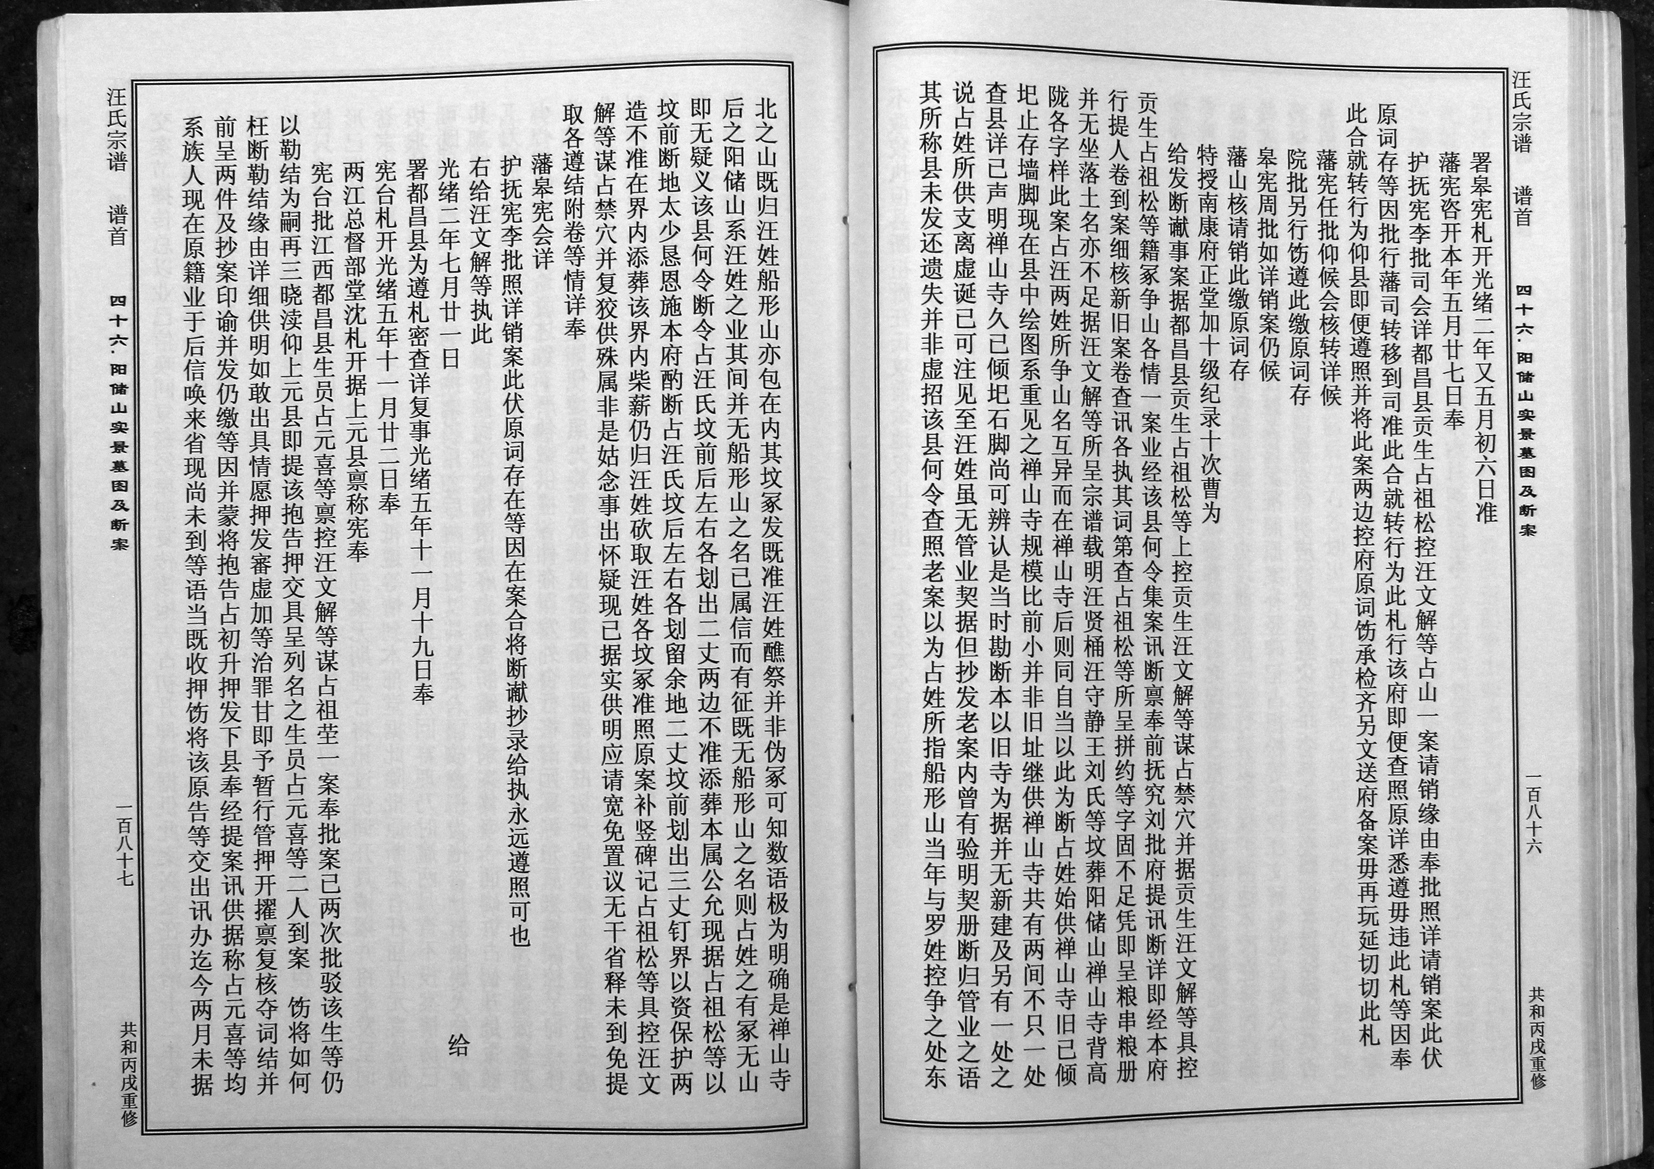 汪氏宗谱 谱首 四十六.阳储山实景墓图及断案 一百八十六 共和丙戌重修
署皋宪札开光绪二年又五月初六日准
藩宪咨开本年五月廿七日奉
护抚宪李批司会详都昌县贡生占祖松控汪文解等占山一案请销缘由奉批照详请销案此伏
原词存等因批行藩司转移到司准此合就转行为此札行该府即便查照原详悉遵毋违此札等因奉
此合就转行为仰县即便遵照并将此案两边控府原词饬承检齐另文送府备案毋再玩延切切此札
藩宪任批仰候会核转详候
院批另行饬遵此缴原词存
皋宪周批如详销案仍候
藩山核请销此缴原词存
特授南康府正堂加十级纪录十次曹为
给发断谳事案据都昌县贡生占祖松等上控贡生汪文解等谋占禁穴并据贡生汪文解等具控
贡生占祖松等籍冢争山各情一案业经该县何令集案讯断禀奉前抚究刘批府提讯断详即经本府
行提人卷到案细核新旧案卷查讯各执其词第查占祖松等所呈拼约等字固不足凭即呈粮串粮册
并无坐落土名亦不足据汪文解等所呈宗谱载明汪贤桶汪守静王刘氏等坟葬阳储山禅山寺背高
陇各字样此案占汪两姓所争山名互异而在禅山寺后则同自当以此为断占姓始供禅山寺旧已倾
圯止存墙脚现在县中绘图系重见之禅山寺规模比前小并非旧址继供禅山寺共有两间不只一处
查县详己声明禅山寺久已倾圯石脚尚可辨认是当时勘断本以旧寺为据并无新建及另有一处之
说占姓所供支离虚诞已可注见至汪姓虽无管业契据但抄发老案内曾有验明契册断归管业之语
其所称县未发还遗失并非虚招该县何令查照老案以为占姓所指船形山当年与罗姓控争之处东
汪氏宗谱 谱首 四十六.阳储山实景墓图及断案 一百八十七 共和丙戌重修
北之山既归汪姓船形山亦包在内其坟冢发既准汪姓醮祭并非伪冢可知数语极为明确是禅山寺
后之阳储山系汪姓之业其间并无船形山之名已属信而有征既无船形山之名则占姓之有冢无山
即无疑义该县何令断令占汪氏坟前后左右各划出二丈两边不准添葬本属公允现据占祖松等以
坟前断地太少恳恩施本府酌断占汪氏坟后左右各划留余地二丈坟前划出三丈钉界以资保护两
造不准在界内添葬该界内柴薪仍归汪姓砍取汪姓各坟冢准照原案补竖碑记占祖松等具控汪文
解等谋占禁穴并复狡供殊属非是姑念事出怀疑现已据实供明应请宽免置议无干省释未到免提
取各遵结附卷等情详奉
藩皋宪会详
护抚宪李批照详销案此伏原词存在等因在案合将断谳抄录给执永远遵照可也
右给汪文解等执此
光绪二年七月廿一日 给
署都昌县为遵札密查详复事光绪五年十一月十九日奉
宪台札开光绪五年十一月廿二日奉
两江总督部堂沈札开据上元县禀称宪奉
宪台批江西都昌县生员占元喜等禀控汪文解等谋占祖茔一案奉批案已两次批驳该生等仍
以勒结为嗣再三晓渎仰上元县即提该抱告押交具呈列名之生员占元喜等二人到案 饬将如何
枉断勒结缘由详细供明如敢出具情愿押发审虚加等治罪甘即予暂行管押开擢禀复核夺词结并
前呈两件及抄案印谕并发仍缴等因并蒙将抱告占初升押发下县奉经提案讯供据称占元喜等均
系族人现在原籍业于后信唤来省现尚未到等语当既收押饬将该原告等交出讯办迄今两月未据